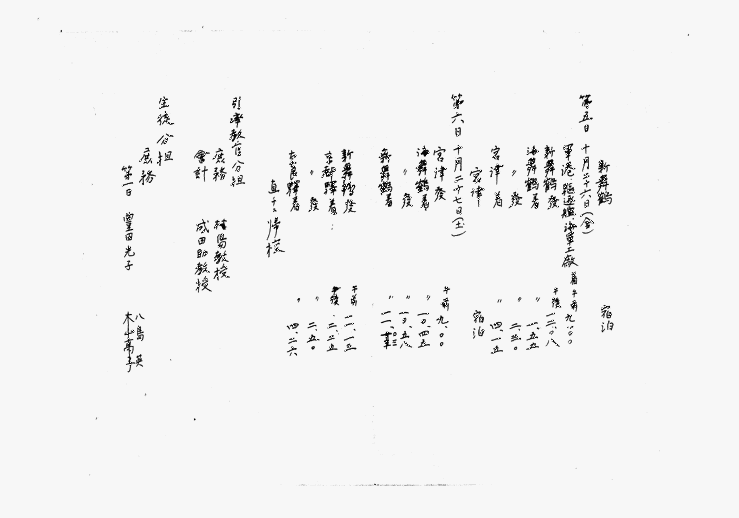 新舞鶴 宿泊
第五日 十月二十六日(金)
軍港、駆逐艦、海軍工廠 着午前九、〇〇
新舞鶴發 午後一二、〇八
海舞鶴着 〃 一、五五
〃 發 〃 二、三〇
宮津着 〃 四、一五
宮津 宿泊
第六日 十月二十七日(土)
宮津發 午前九、〇〇
海舞鶴着 〃 一〇、四五
〃 發 〃 一〇、五八
新舞鶴着 〃 一一、
新舞鶴發 午前一一、一五
京都驛着 午後二、二五
〃 發 〃 二、五〇
奈良驛着 〃 四、二六
直チニ帰校
引率教官分担
庶務 教授
會計 成田助教授
生徒分担
庶務
第一日 豊田光子 八島英